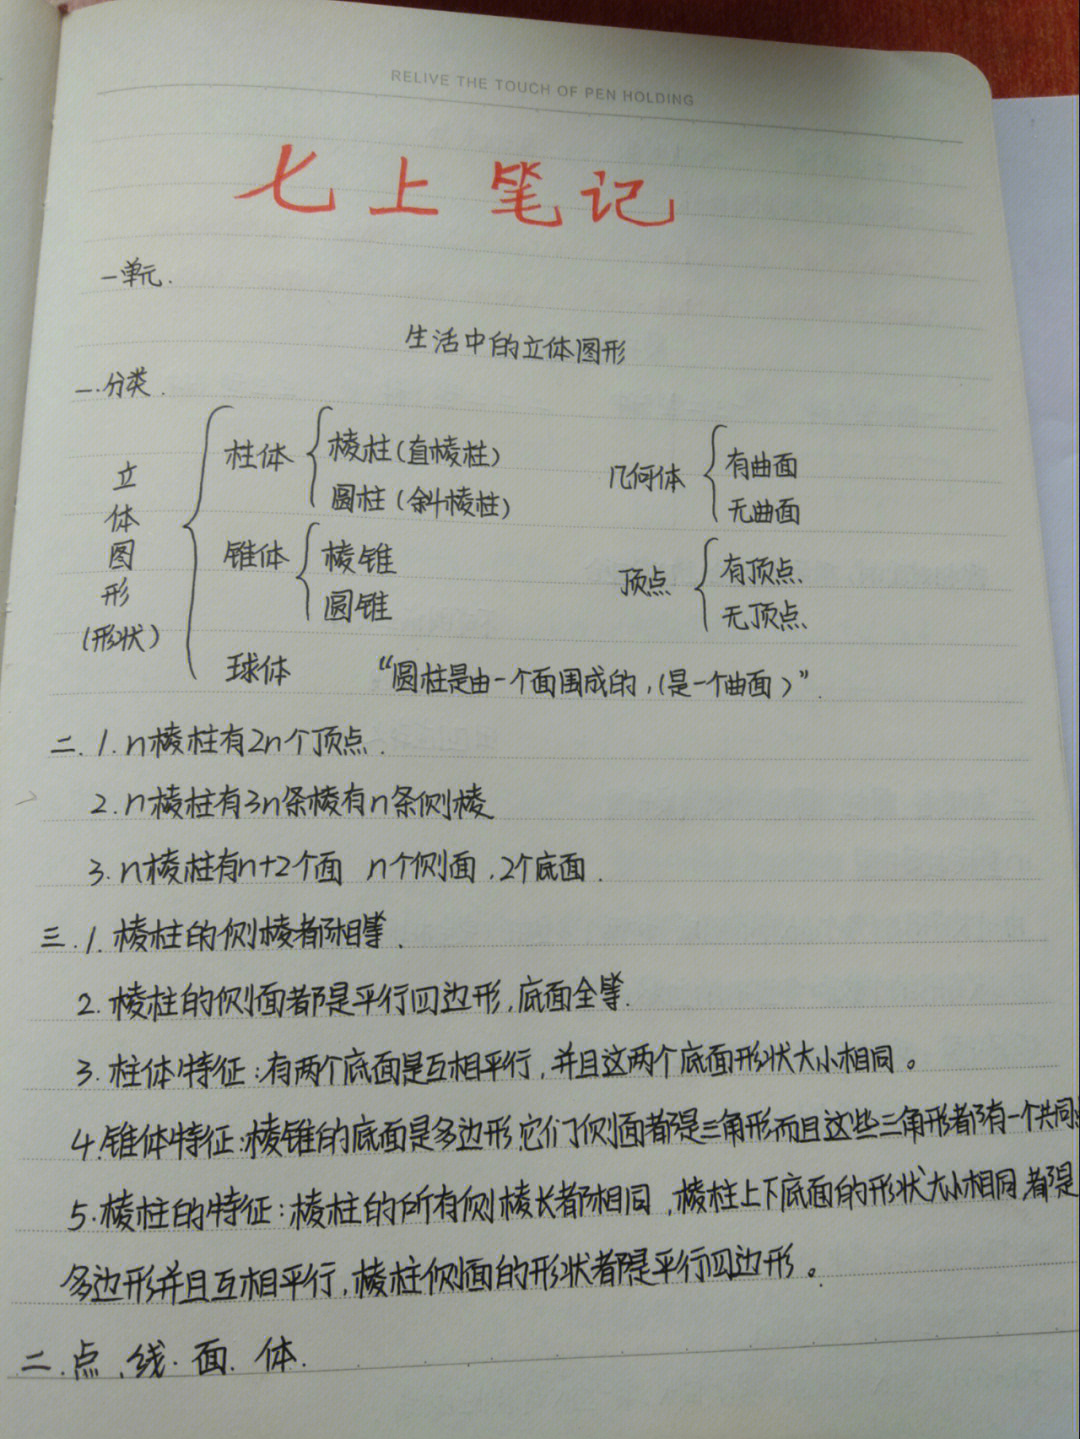 RELIVE THE TOUCH OF PEN HOLDING
七上笔记
一单元.
生活中的立体图形
一.分类.
立体图形(形状)
柱体 棱柱(直棱柱)
圆柱(斜棱柱)
锥体 棱锥
圆锥
球体
几何体 有曲面
无曲面
顶点 有顶点.
无顶点.
“圆柱是由一个面围成的,(是一个曲面)”.
二.1.n棱柱有2n个顶点.
2.n棱柱有3n条棱有n条侧棱
3.n棱柱有n+2个面 n个侧面,2个底面.
三.1.棱柱的侧棱都相等.
2.棱柱的侧面都是平行四边形,底面全等.
3.柱体特征:有两个底面是互相平行,并且这两个底面形状大小相同。
4.锥体特征:棱锥的底面是多边形,它们侧面都是三角形而且这些三角形都有一个共同
5.棱柱的特征:棱柱的所有侧棱长都相同,棱柱上下底面的形状大小相同,都是
多边形并且互相平行,棱柱侧面的形状都是平行四边形。
二.点、线.面.体.